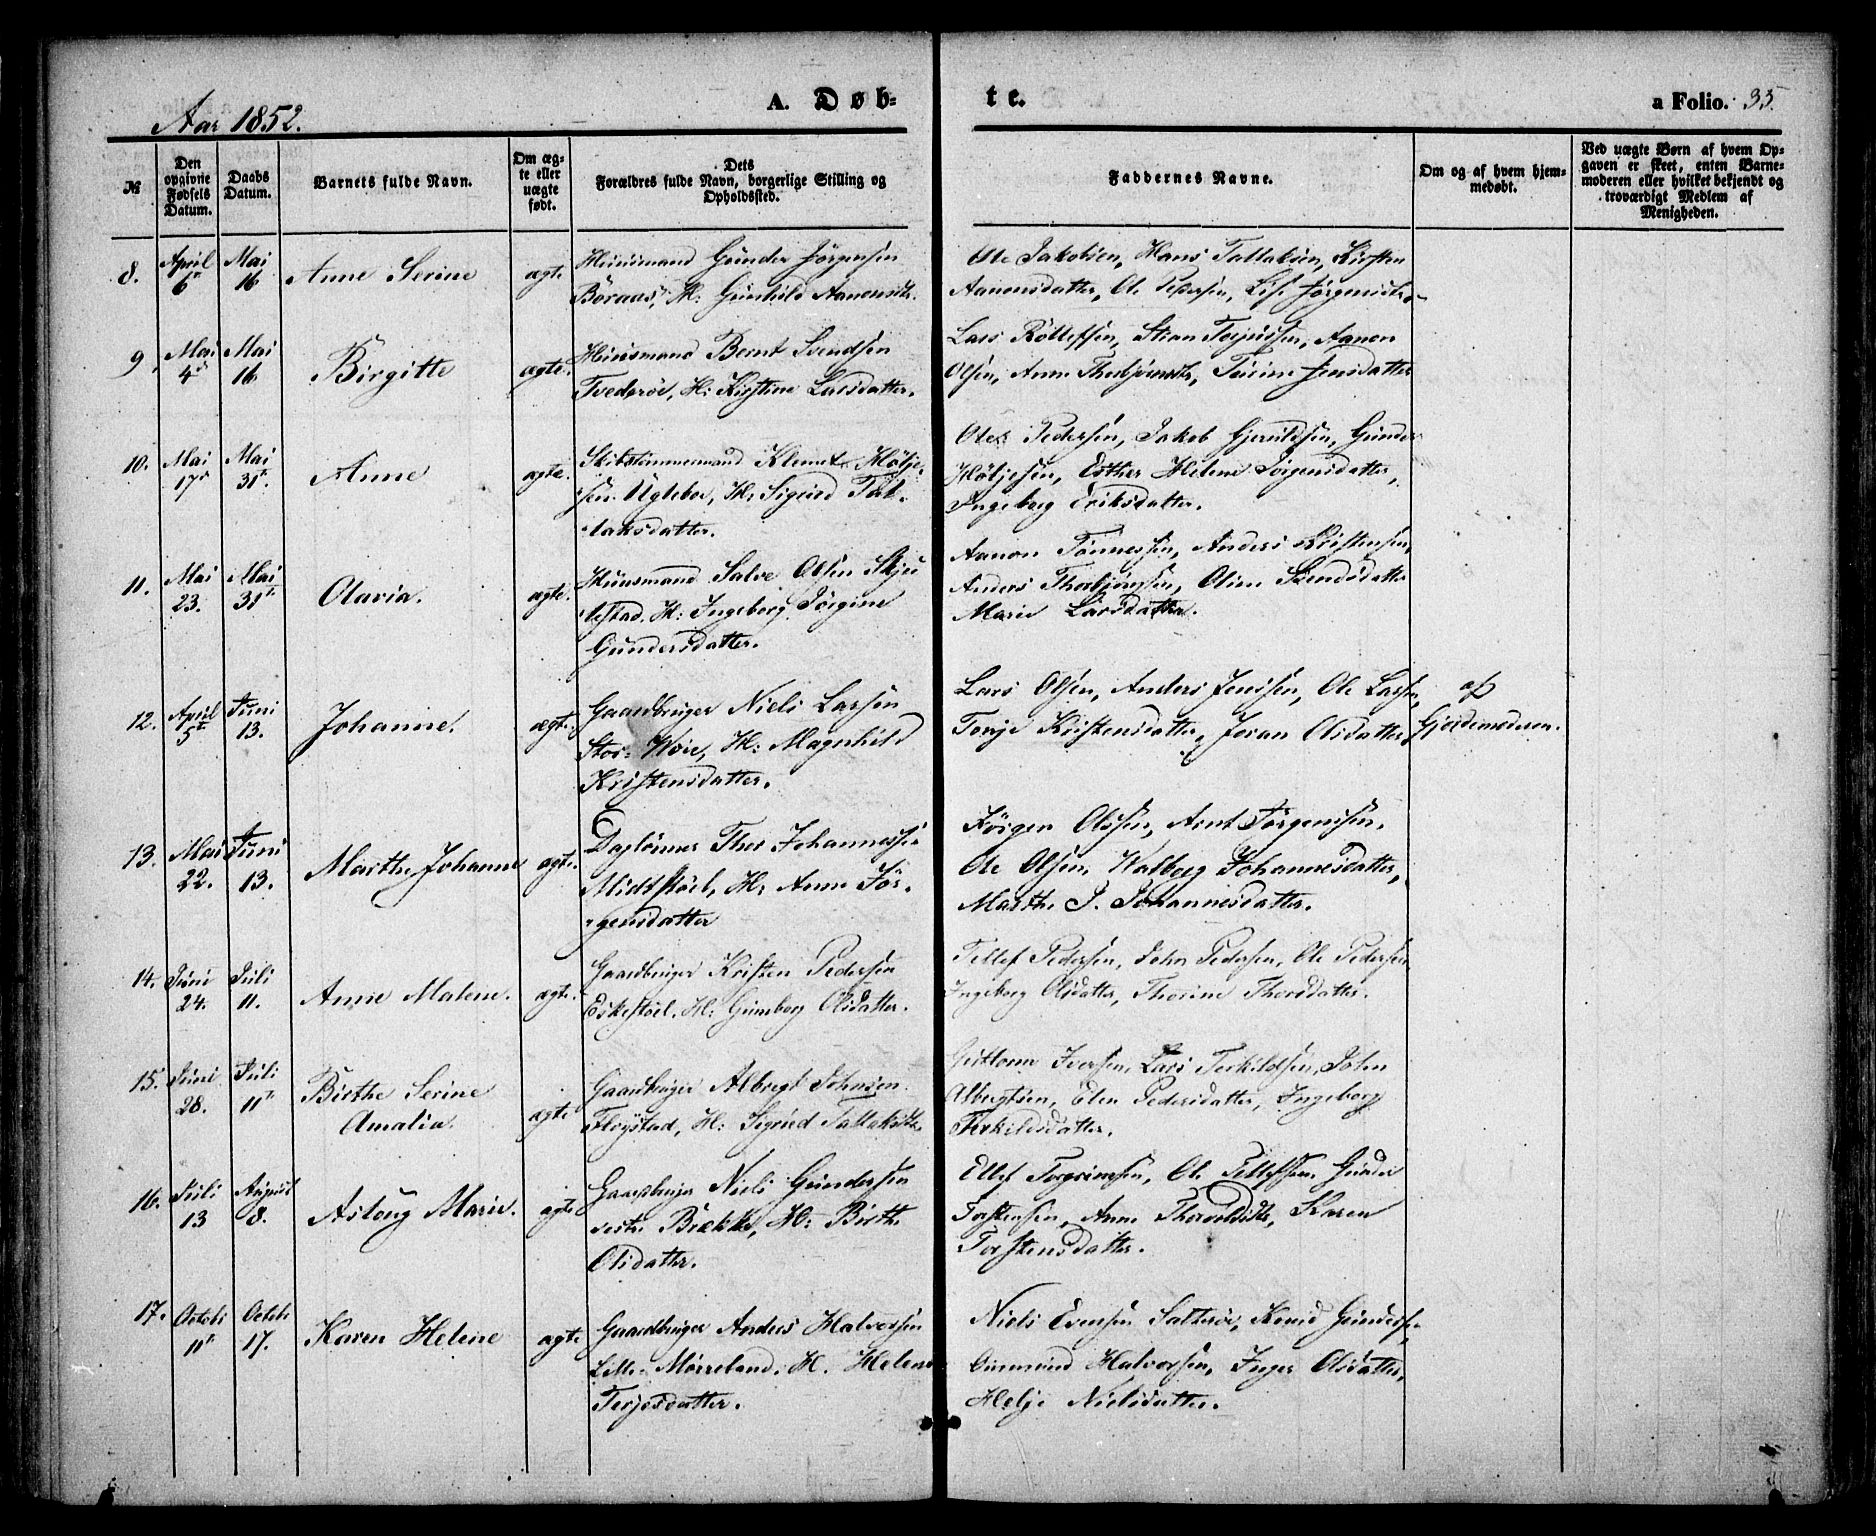 Aar 1852.
A. Døb-
te.
a Folio. 35.
№
Den opgivne Fødsels Datum.
Daabs Datum.
Barnets fulde Navn.
Om ægte eller uægte født.
Dets Forældres fulde Navn, borgerlige Stilling og Opholdssted.
Faddernes Navne.
Om og af hvem hjemmedøbt.
Ved uægte Børn af hvem Opgaven er skeet, enten Barnemoderen eller hvilket bekjendt og troværdigt Medlem af Menigheden.
8.
April 6te
Mai 16
Anne Serine
ægte
Huusmand Gunder Jørgensen
Boraas, H: Gunhild Aanensdtr.
Ole Jakobsen, Hans Tallaksen, Kirsten
Aanonsdatter, Ole Pedersen, Lise Jørgensdtr.
9
Mai 4de
Mai 16
Birgitte
ægte.
Huusmand Bernt Svendsen
Tvederøe, H: Kirstine Larsdatter.
Lars Rollefsen, Stian Terjussen, Aanon
Olsen, Anne Thorbjørnsdtr, Turine Jensdatter
10.
Mai 17de
Mai 31te.
Anne
ægte.
Skibstømmermand Klemet Høljesen
Ugleboe, H: Sigrid Tallaksdatter.
Ole Pedersen, Jakob Gjeruldsen, Gunder
Høljesen, Esther Helene Jørgensdatter,
Ingeborg Eriksdatter.
11.
Mai 23.
Mai 31te
Olavia.
ægte.
Huusmand Salve Olsen Skjulestad.
H: Ingeborg Jørgine
Gundersdatter.
Aanon Tønnessen, Anders Kristensen,
Anders Thorbjørnsen, Oline Svendsdatter
Marie Larsdatter.
12.
April 5te
Juni 13.
Johanne.
ægte.
Gaardbruger Niels Larsen
Store Woie, H: Magnhild
Kristensdatter.
Lars Olsen, Anders Jenssen, Ole Larsen,
Tonje Kristensdatter, Joran Olsdatter
af
Gjordemoderen.
13.
Mai 22.
Juni 13.
Marthe Johanne
ægte.
Daglønner Thor Johannessen
Midtstøel, H: Anne Jørgensdatter
Jørgen Olssen, Arnt Jørgenssen,
Ole Olsen, Walborg Johannesdatter,
Marthe S. Johannesdatter.
14.
Juni 24.
Juli 11.
Anne Malene.
ægte.
Gaardbruger Kristen Pedersen
Eskestøel. H: Gunborg Olsdatter.
Tellef Pedersen, John Pedersen, Ole Pedersen
Ingeborg Olsdatter, Thorine Thorsdatter.
15.
Juni 28.
Juli 11te
Birthe Serine
Amalia.
ægte
Gaardbruger Albregt Johnsen
Fløystad, H: Sigrid Tallaksdtr.
Guttorm Iversen, Lars Terkildsen, John
Albregtsen, Elen Pedersdatter, Ingeborg
Terkildsdatter.
16.
Juli 13
August 8.
Asloug Marie.
ægte
Gaardbruger Niels Gundersen
Brække, H: Birthe
Olsdatter.
Ellef Torgrimsen, Ole Tellefsen, Gunder
Torstensen, Anne Thorvaldsdtr, Karen
Torstensdatter.
17.
Octobr 11te
Octobr 17.
Karen Helene
ægte
Gaardbruger Anders Halvorsen
Lille Mørreland. H. Helene
Terjesdatter.
Niels Evensen Salterøe, Knud Gundersen,
Ommund Halvorsen, Inger Olsdatter,
Helje Nielsdatter.